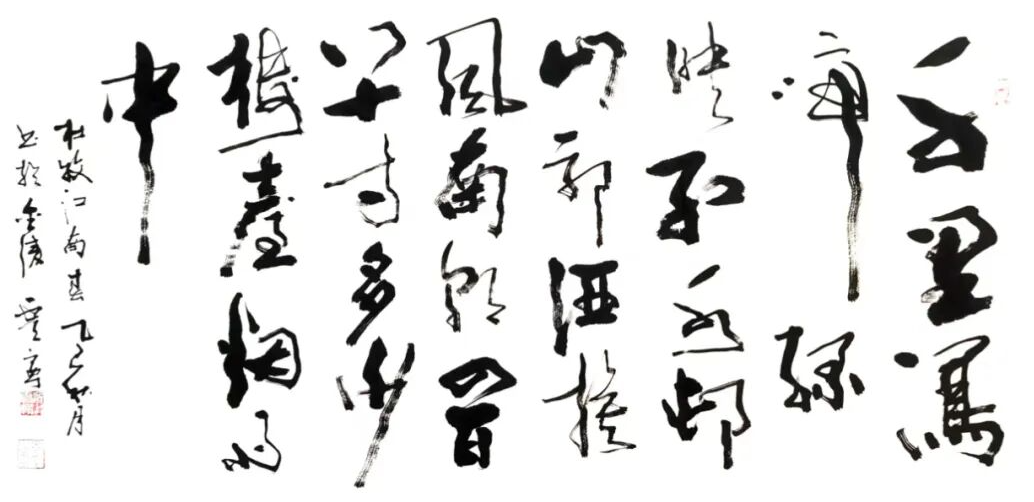 千里鶯
啼綠
映紅水村
山郭酒旗
風南朝四百
八十寺多少
樓臺烟雨
中
杜牧江南春乙巳月
书於金陵